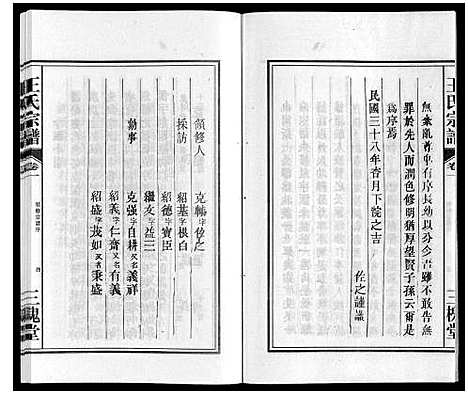 王氏宗譜
卷一
三槐堂
無紊亂尊卑有序長幼以分少吾雖不敢告無
罪於先人而潤色修明猶厚望賢子孫云爾是
爲序焉
民國三十八年杏月下浣之吉
佐之謹識
領修人
克輔字佐之
採訪
紹基字根白
紹德字寶臣
繼友字益三
勸事
克強字自耕又名義祥
紹義字仁齋又名有義
紹盛字茂如又名秉盛
王氏宗譜
卷一
三槐堂